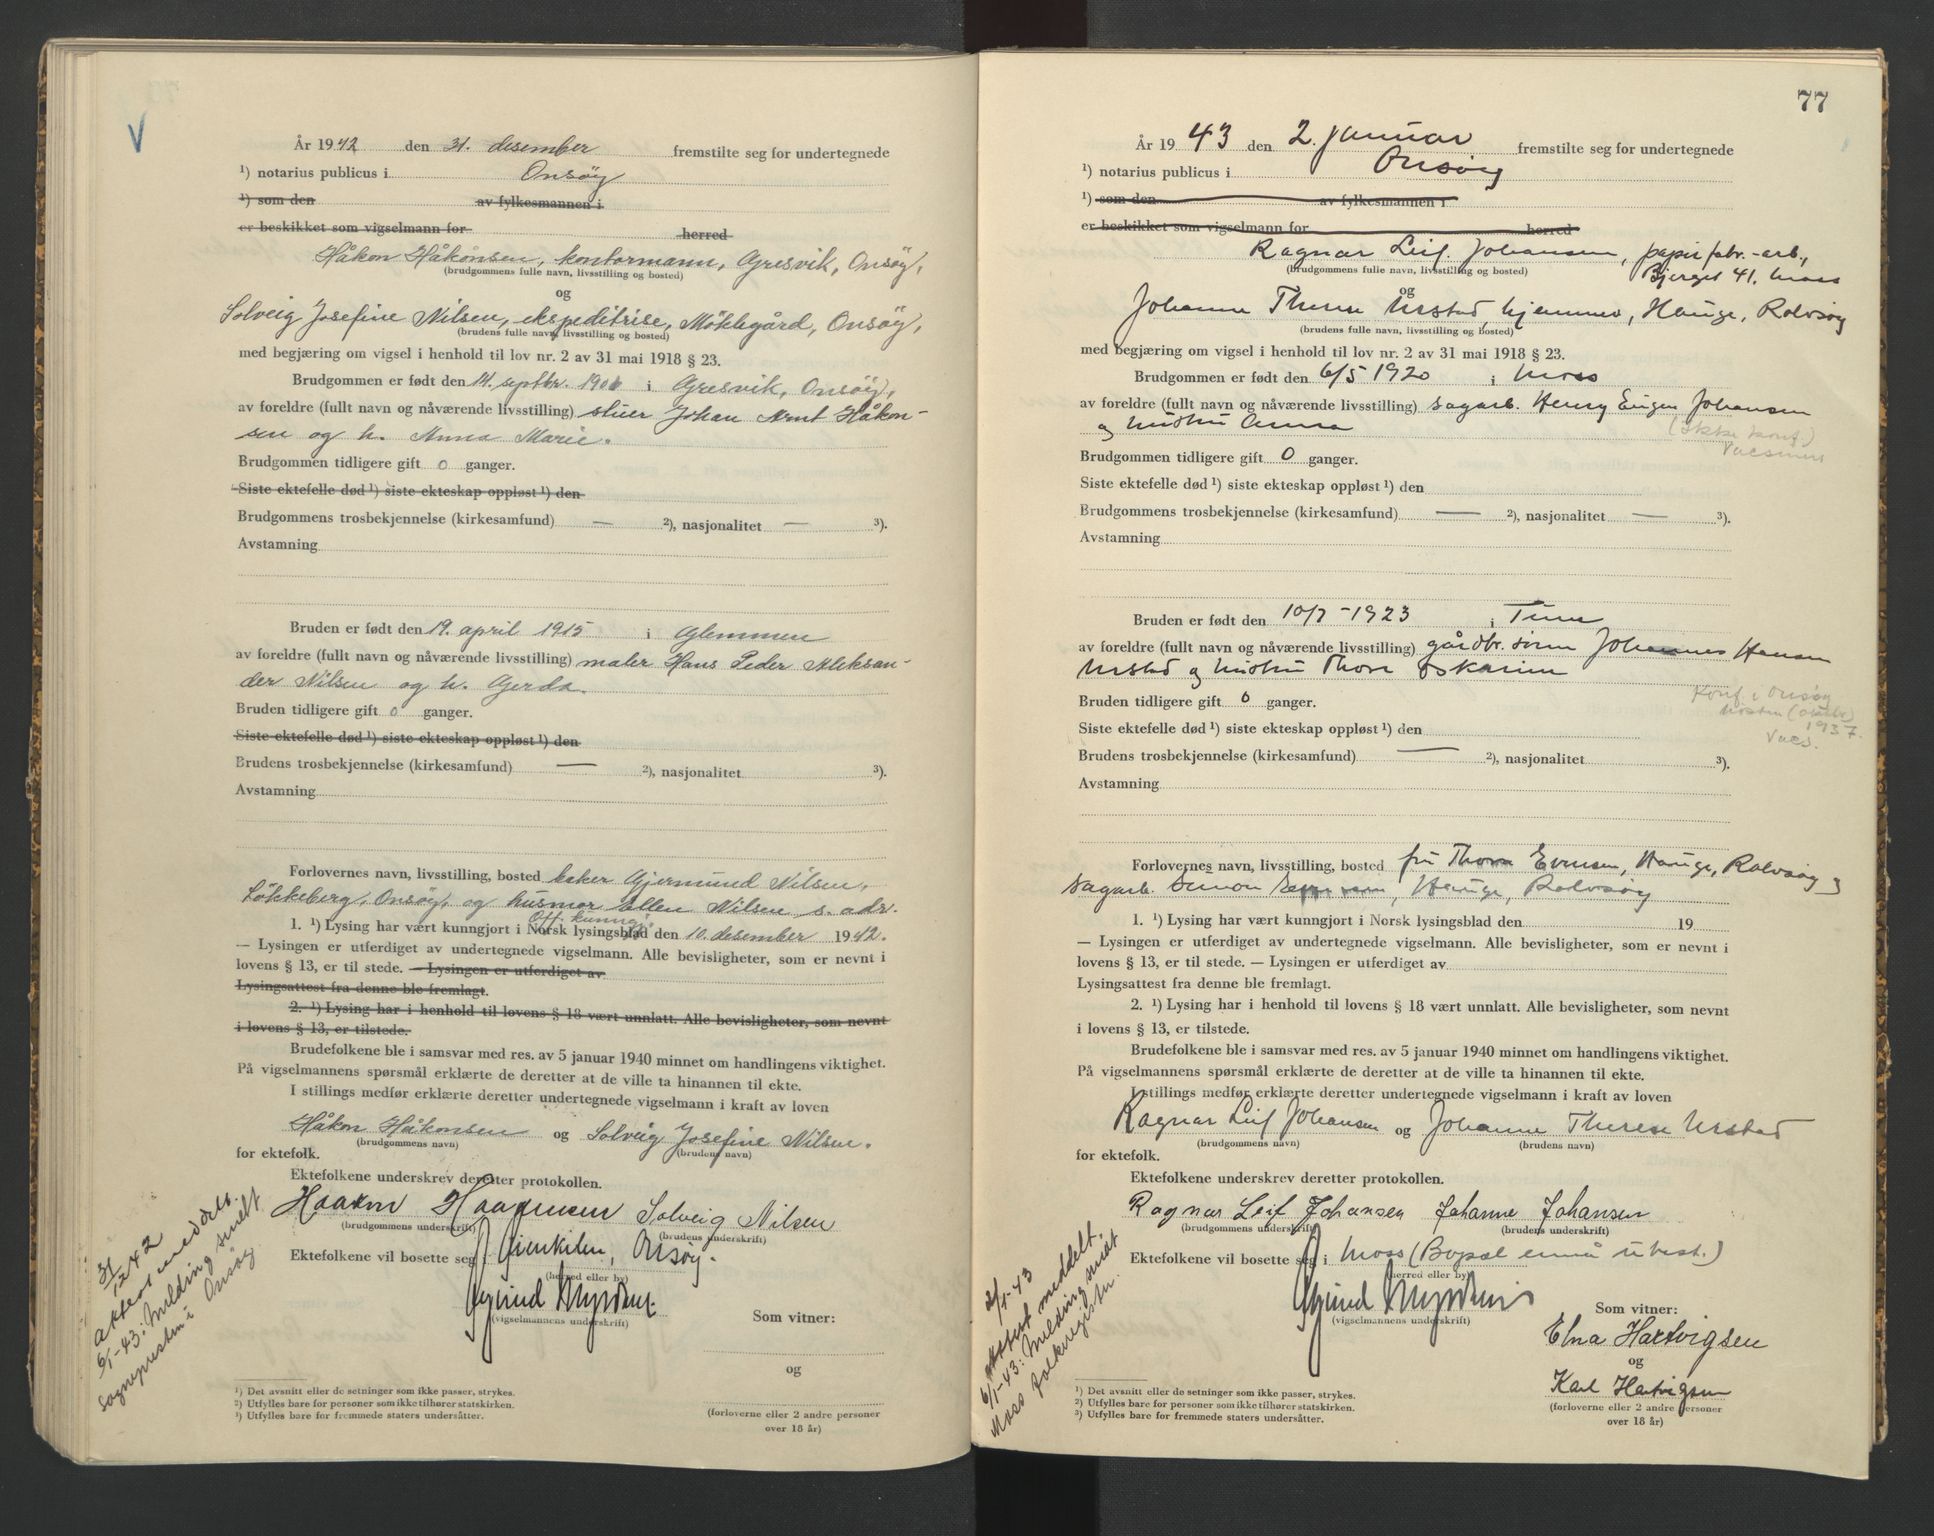 V
År 1942 den 31. desember fremstilte seg for undertegnede
¹) notarius publicus i Onsøy
¹) som den av fylkesmannen i
er beskikket som vigselmann for herred
Håkon Håkonsen, kontormann, Gresvik, Onsøy,
(brudgommens fulle navn, livsstilling og bosted)
og
Solveig Josefine Nilsen, ekspeditrise, Møklegård, Onsøy,
(brudens fulle navn, livsstilling og bosted)
med begjæring om vigsel i henhold til lov nr. 2 av 31 mai 1918 § 23.
Brudgommen er født den 14. septbr. 1906 i Gresvik, Onsøy,
av foreldre (fullt navn og nåværende livsstilling) stuer Johan Arnt Håkon-
sen og h. Anna Marie.
Brudgommen tidligere gift 0 ganger.
Siste ektefelle død ¹) siste ekteskap oppløst ¹) den
Brudgommens trosbekjennelse (kirkesamfund) — ²), nasjonalitet — ³).
Avstamning
Bruden er født den 19. april 1915 i Glemmen
av foreldre (fullt navn og nåværende livsstilling) maler Hans Peder Aleksan-
der Nilsen og h. Gerda.
Bruden tidligere gift 0 ganger.
Siste ektefelle død ¹) siste ekteskap oppløst ¹) den
Brudens trosbekjennelse (kirkesamfund) — ²), nasjonalitet ³).
Avstamning
Forlovernes navn, livsstilling, bosted baker Gjermund Nilsen,
Løkkeberg, Onsøy, og husmor Ellen Nilsen s. adr.
Off. kunngj.
1. ¹) Lysing har vært kunngjort i Norsk lysingsblad den 10. desember 1942.
— Lysingen er utferdiget av undertegnede vigselmann. Alle bevisligheter, som er nevnt i
lovens § 13, er til stede. — Lysingen er utferdiget av
Lysingsattest fra denne ble fremlagt.
2. ¹) Lysing har i henhold til lovens § 18 vært unnlatt. Alle bevisligheter, som nevnt
i lovens § 13, er tilstede.
Brudefolkene ble i samsvar med res. av 5 januar 1940 minnet om handlingens viktighet.
På vigselmannens spørsmål erklærte de deretter at de ville ta hinannen til ekte.
I stillings medfør erklærte deretter undertegnede vigselmann i kraft av loven
Håkon Håkonsen og Solveig Josefine Nilsen.
(brudgommens navn) (brudens navn)
for ektefolk.
Ektefolkene underskrev deretter protokollen.
Haakon Haakonsen Solveig Nilsen
(brudgommens underskrift) (brudens underskrift)
Ektefolkene vil bosette seg i Onsøy.
(herred eller by)
(vigselmannens underskrift)
Som vitner:
og
(forloverne eller 2 andre personer
over 18 år)
31/12 42
attest meddelt.
6/1-43: Melding sendt
sognepresten i Onsøy
¹) Det avsnitt eller de setninger som ikke passer, strykes.
²) Utfylles bare for personer som ikke tilhører statskirken.
³) Utfylles bare for fremmede staters undersåtter.
77
År 1943 den 2. januar fremstilte seg for undertegnede
¹) notarius publicus i Onsøy
¹) som den av fylkesmannen i
er beskikket som vigselmann for herred
Ragnar Leif Johansen, papirfabr.-arb.,
(brudgommens fulle navn, livsstilling og bosted)
Bjerget 41, Moss
og
Johanne Therese Urstad, hjemmev, Hauge, Rolvsøy
(brudens fulle navn, livsstilling og bosted)
med begjæring om vigsel i henhold til lov nr. 2 av 31 mai 1918 § 23.
Brudgommen er født den 6/5 1920 i Moss
av foreldre (fullt navn og nåværende livsstilling) sagarb. Henry Eugen Johansen
og hustru Anna
(ikke konf.)
Brudgommen tidligere gift 0 ganger.
Siste ektefelle død ¹) siste ekteskap oppløst ¹) den
Brudgommens trosbekjennelse (kirkesamfund) — ²), nasjonalitet — ³).
Avstamning
Bruden er født den 10/7-1923 i Tune
av foreldre (fullt navn og nåværende livsstilling) Johannes Hansen
Urstad og hustru Thora Oskarine
Bruden tidligere gift 0 ganger.
Konf. i Onsøy
høsten (oktbr)
1937.
Siste ektefelle død ¹) siste ekteskap oppløst ¹) den
Brudens trosbekjennelse (kirkesamfund) — ²), nasjonalitet ³).
Avstamning
Forlovernes navn, livsstilling, bosted fru Thora Evensen, Hauge, Rolvsøy og
sagarb. Simon Evensen, Hauge, Rolvsøy
1. ¹) Lysing har vært kunngjort i Norsk lysingsblad den 19
— Lysingen er utferdiget av undertegnede vigselmann. Alle bevisligheter, som er nevnt i
lovens § 13, er til stede. — Lysingen er utferdiget av
Lysingsattest fra denne ble fremlagt.
2. ¹) Lysing har i henhold til lovens § 18 vært unnlatt. Alle bevisligheter, som nevnt
i lovens § 13, er tilstede.
Brudefolkene ble i samsvar med res. av 5 januar 1940 minnet om handlingens viktighet.
På vigselmannens spørsmål erklærte de deretter at de ville ta hinannen til ekte.
I stillings medfør erklærte deretter undertegnede vigselmann i kraft av loven
Ragnar Leif Johansen og Johanne Therese Urstad
(brudgommens navn) (brudens navn)
for ektefolk.
Ektefolkene underskrev deretter protokollen.
Ragnar Leif Johansen Johanne Johansen
(brudgommens underskrift) (brudens underskrift)
Ektefolkene vil bosette seg i Moss (Bopæl ennå ubest.)
(herred eller by)
(vigselmannens underskrift)
Som vitner:
Elna Hartvigsen
og
Karl Hartvigsen
(forloverne eller 2 andre personer
over 18 år)
2/1-43
attest meddelt.
6/1-43: Melding sendt
Moss folkeregister.
¹) Det avsnitt eller de setninger som ikke passer, strykes.
²) Utfylles bare for personer som ikke tilhører statskirken.
³) Utfylles bare for fremmede staters undersåtter.